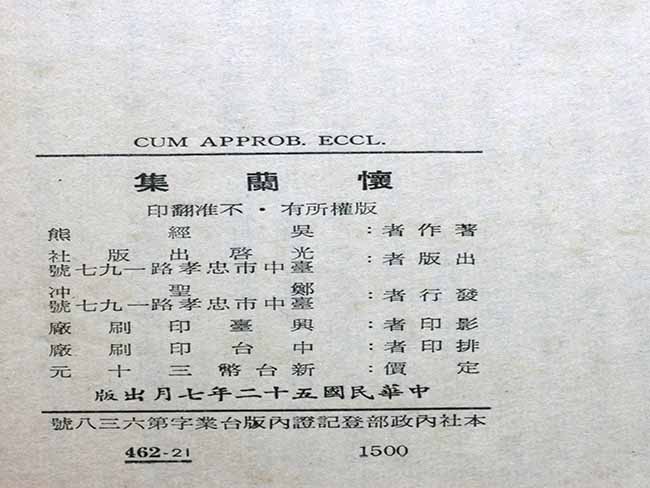 CUM APPROB. ECCL.
懷蘭集
版權所有・不准翻印
著作者：吳經熊
出版者：光啓出版社
臺中市忠孝路一九七號
發行者：鄭聖沖
臺中市忠孝路一九七號
影印者：興臺印刷廠
排印者：中台印刷廠
定價：新台幣三十元
中華民國五十二年七月出版
本社內政部登記證內版台業字第六三八號
462-21 1500